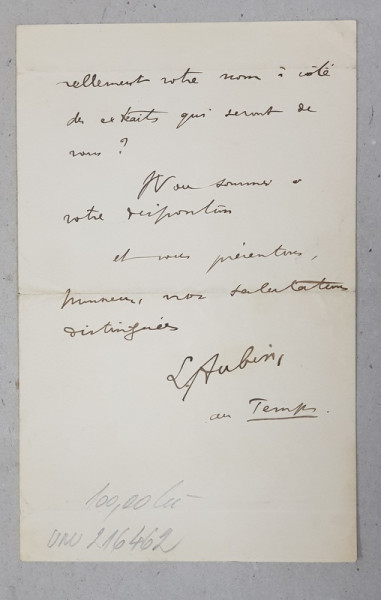 rellement votre nom à côté
des extraits qui seront de
vous ?
Nous sommes à
votre disposition
et vous présentons,
Monsieur, nos salutations
distinguées
L. Aubin,
au Temps.
100,00 lei
UNV 216462